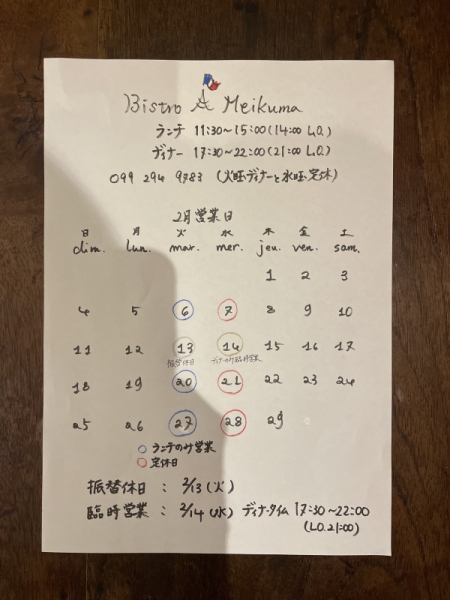 Bistro A Meikuma
ランチ 11:30~15:00(14:00 L.O.)
ディナー 17:30~22:00(21:00 L.O.)
099 294 9783 (火曜ディナーと水曜定休)
2月営業日
日 月 火 水 木 金 土
dim. lun. mar. mer. jeu. ven. sam.
1 2 3
4 5 6 7 8 9 10
11 12 13 14 15 16 17
振替休日 ディナーのみ臨時営業
18 19 20 21 22 23 24
25 26 27 28 29
ランチのみ営業
定休日
振替休日 : 2/13(火)
臨時営業 : 2/14(水) ディナータイム 17:30~22:00
(L.O.21:00)